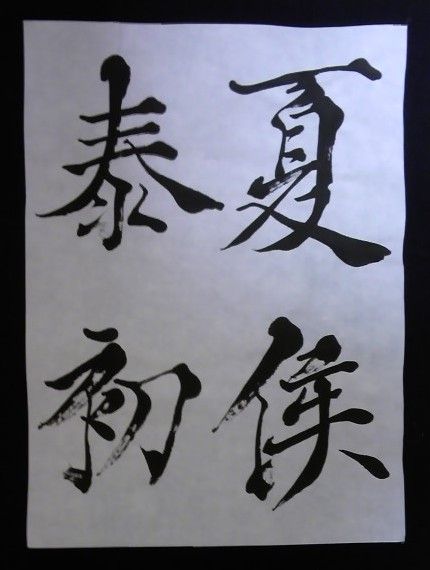 夏侯
泰初